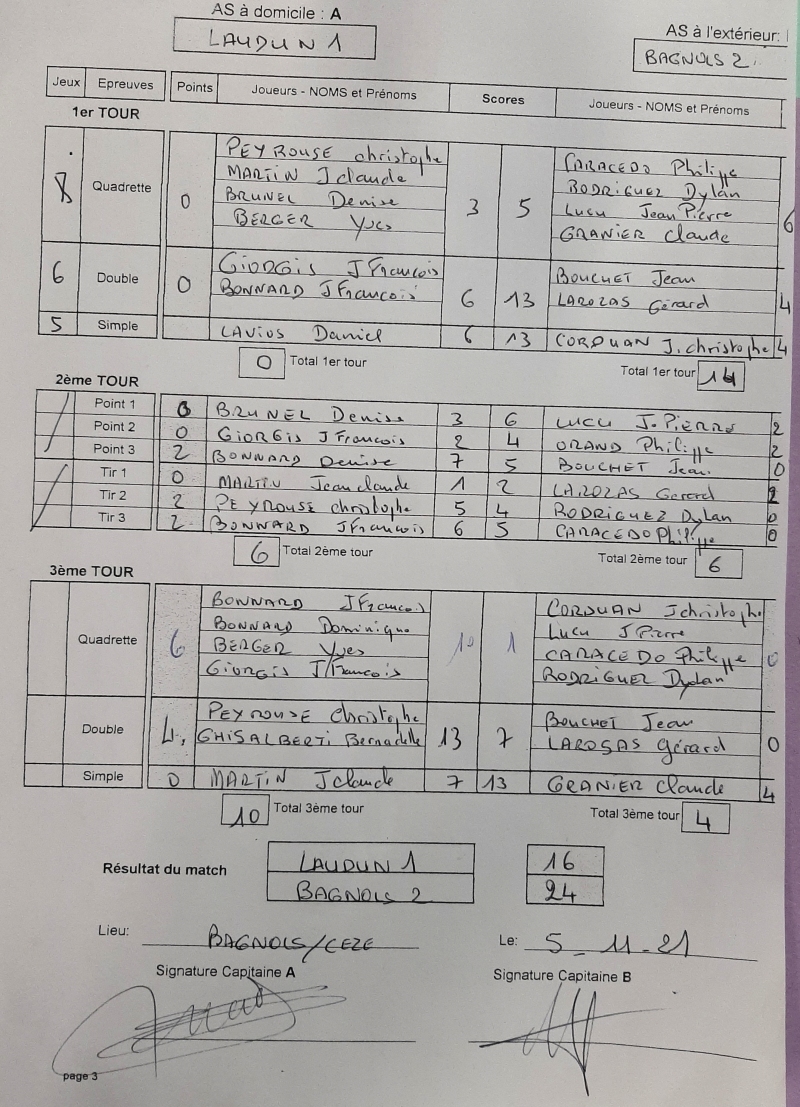 AS à domicile : A
LAUDUN 1
AS à l'extérieur:
BAGNOLS 2
Jeux Epreuves Points Joueurs - NOMS et Prénoms Scores Joueurs - NOMS et Prénoms
1er TOUR
8 Quadrette 0 3 5 6
PEYROUSE christophe CARACEDO Philippe
MARTIN Jclaude RODRIGUEZ Dylan
BRUNEL Denise LUCU JeanPierre
BERGER Yves GRANIER Claude
6 Double 0 6 13 4
GIORGIS JFrancois BOUCHET Jean
BONNARD JFrancois LAROZAS Gérard
5 Simple LAVIOS Daniel 6 13 CORDUAN J.christophe 4
0 Total 1er tour Total 1er tour 14
2ème TOUR
Point 1 0 BRUNEL Denise 3 6 LUCU J.PIERRE 2
Point 2 0 GIORGIS JFrancois 2 4 ORAND Philippe 2
Point 3 2 BONNARD Denise 7 5 BOUCHET Jean. 0
Tir 1 0 MARTIN Jeanclaude 1 2 LAROZAS Gerard 2
Tir 2 2 PEYROUSE christophe 5 4 RODRIGUEZ Dylan 0
Tir 3 2 BONNARD JFrancois 6 5 CARACEDO Philippe 0
6 Total 2ème tour Total 2ème tour 6
3ème TOUR
Quadrette 6 10 1 0
BONNARD JFrancois CORDUAN Jchristophe
BONNARD Dominique LUCU JPierre
BERGER Yves CARACEDO Philippe
GIORGIS J/Francois RODRIGUEZ Dylan
Double 4, 13 7 0
PEYROUSE Christophe BOUCHET Jean
GHISALBERTI Bernadette LAROSAS Gérard
Simple 0 MARTIN Jclaude 7 13 GRANIER Claude 4
10 Total 3ème tour Total 3ème tour 4
Résultat du match
LAUDUN 1 16
BAGNOLS 2 24
Lieu: BAGNOLS/CEZE Le: 5_11-21
Signature Capitaine A Signature Capitaine B
page 3